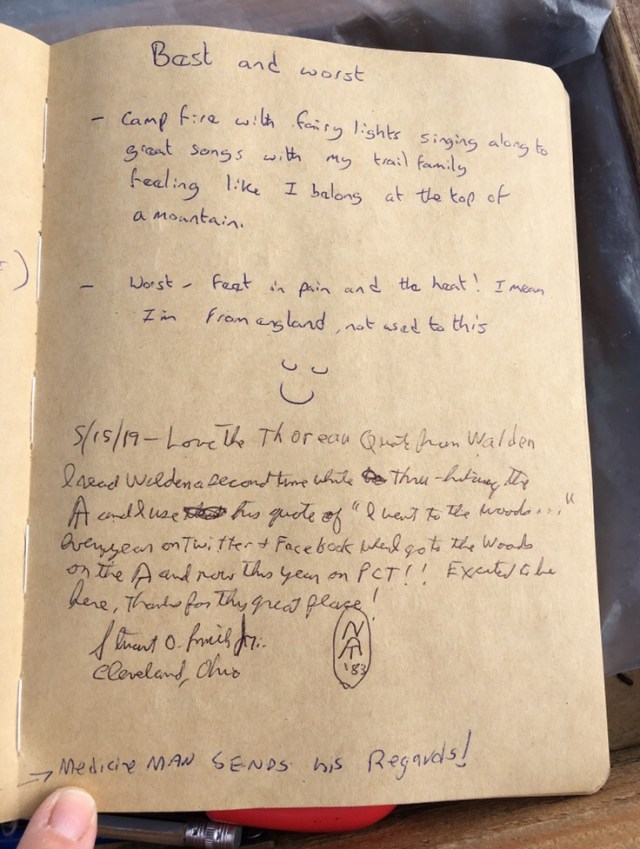 Best and worst
- Camp fire with fairy lights singing along to
great songs with my trail family
feeling like I belong at the top of
a mountain.
- Worst - Feet in pain and the heat! I mean
I'm from england, not used to this
5/15/19 - Love The Thoreau Quote from Walden
I read Walden a second time while thru-hiking the
A and I use his quote of "I went to the woods..."
every year on Twitter + Facebook when I go to the Woods
on the A and now this year on PCT!! Excited to be
here, Thanks for this great place!
Stuart O. Smith Jr.
Cleveland, Ohio
'83
→ Medicine MAN SENDS his Regards!